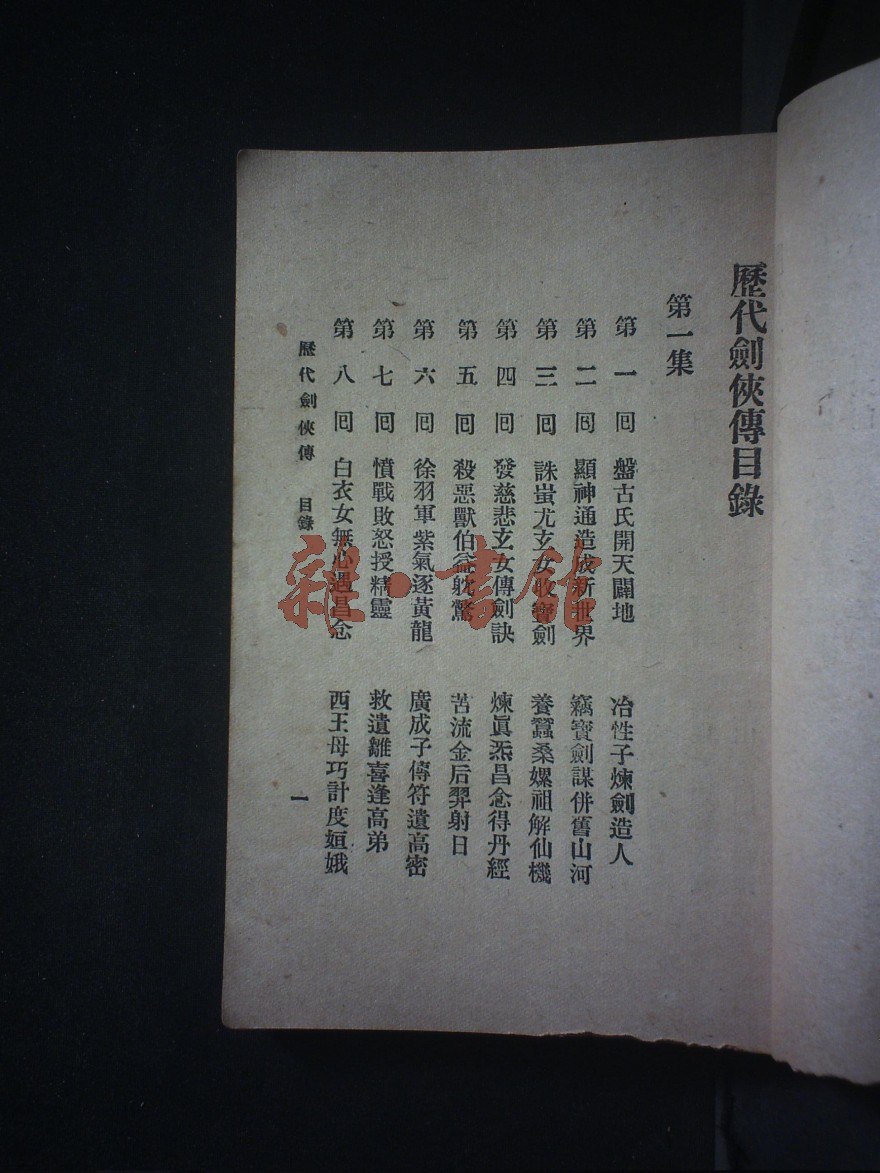 歷代劍俠傳目錄
第一集
第一回 盤古氏開天闢地 冶性子煉劍造人
第二回 顯神通造成新世界 竊寶劍謀併舊山河
第三回 誅蚩尤玄女收寶劍 養蠶桑嫘祖解仙機
第四回 發慈悲玄女傳劍訣 煉眞炁昌意得丹經
第五回 殺惡獸伯益躭驚 苦流金后羿射日
第六回 徐羽軍紫氣逐黃龍 廣成子傳符遺高密
第七回 憤戰敗怒授精靈 救遺雛喜逢高弟
第八回 白衣女無心遇昌意 西王母巧計度姮娥
歷代劍俠傳 目錄 一
雜·書館